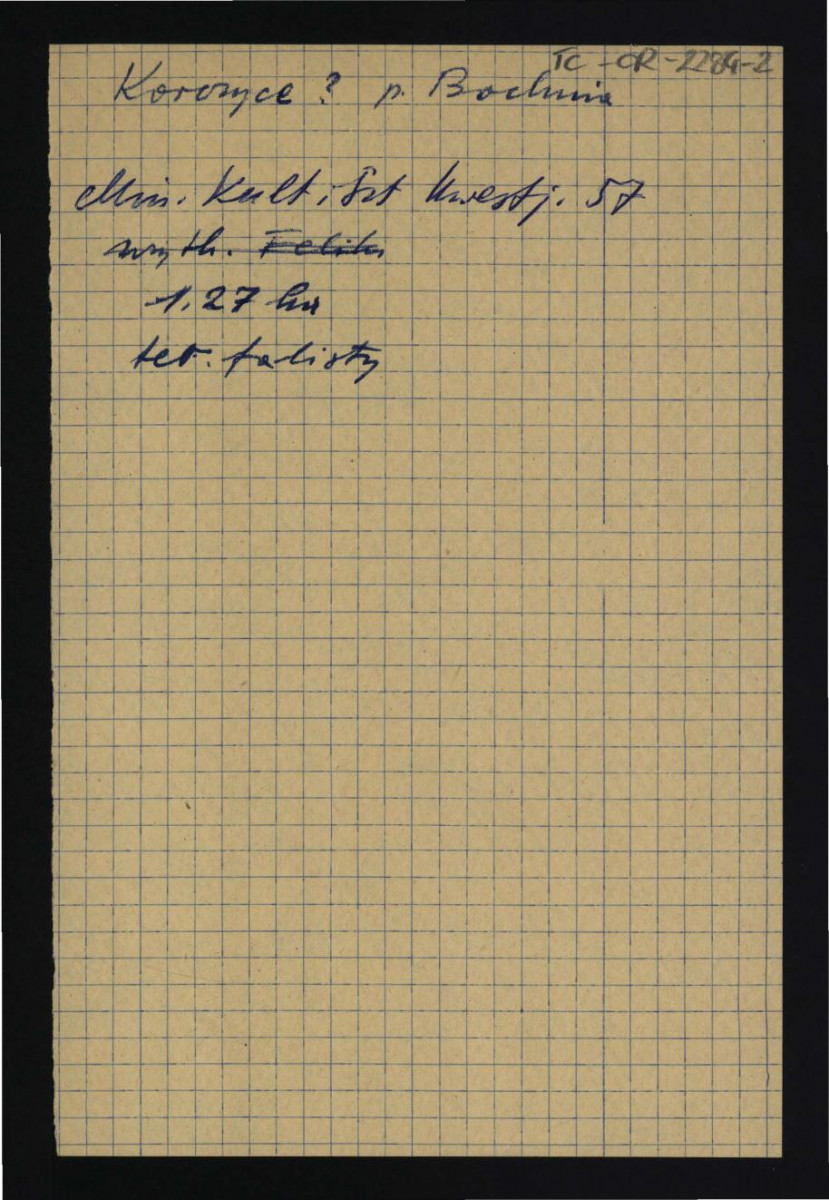 TC-OR-2284-2
Koroszyce ? p. Bochnia
Min. Kult. i Szt Kwestj. 57
wyth. Feliks
1.27 ha
ter. falisty